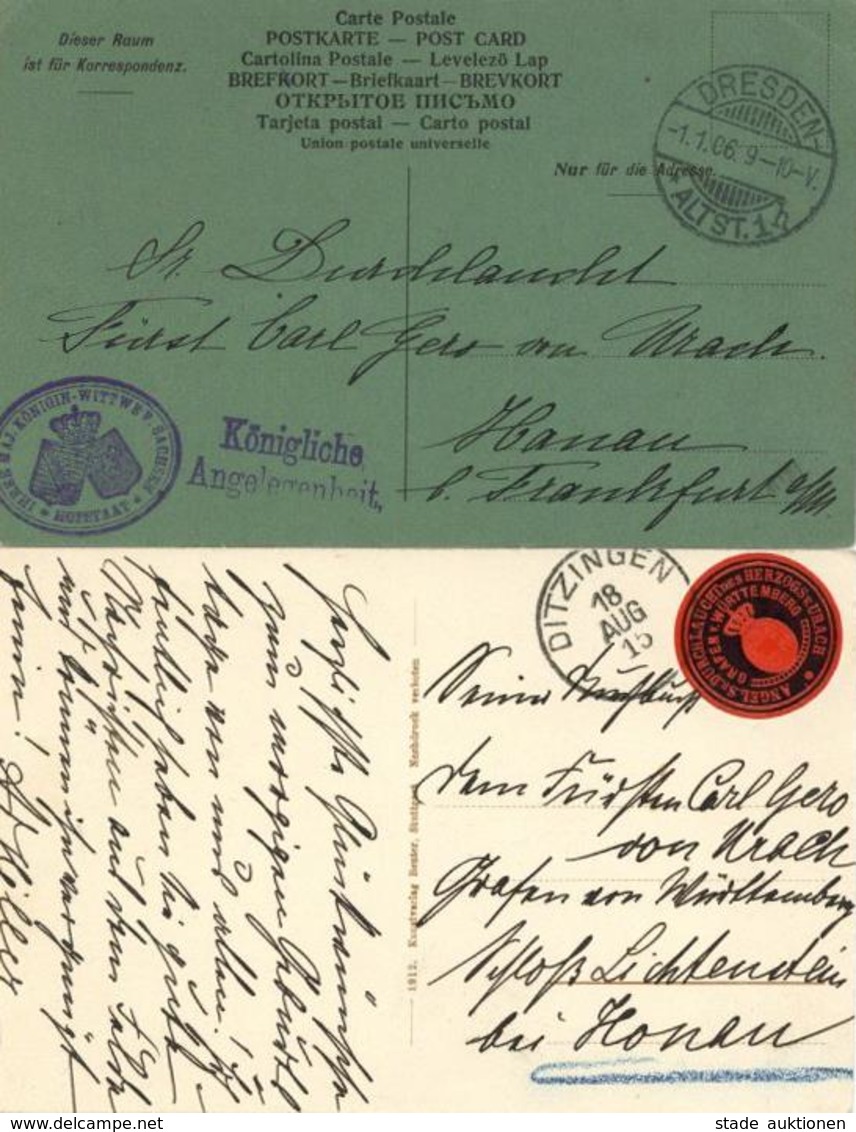 Carte Postale
POSTKARTE — POST CARD
Cartolina Postale — Levelező Lap
BREFKORT—Briefkaart—BREVKORT
ОТКРЫТОЕ ПИСЬМО
Tarjeta postal — Carto postal
Union postale universelle
Dieser Raum
ist für Korrespondenz.
DRESDEN-
-1.1.06. 9-10-V.
* ALTST. 1
Nur für die Adresse.
Sr. Durchlaucht
Fürst Carl Gero von Urach.
Hanau
b. Frankfurt a/M
IHRER MAJ. KÖNIGIN-WITTWE V. SACHSEN
* HOFSTAAT *
Königliche
Angelegenheit.
DITZINGEN
18
AUG
15
ANGEL. Sr. DURCHLAUCHT DES HERZOGS v. URACH *
GRAFEN v. WÜRTTEMBERG
Seiner Durchlaucht
dem Fürsten Carl Gero
von Urach
Grafen von Württemberg
Schloß Lichtenstein
bei Honau
1912. Kunstverlag Reuter, Stuttgart Nachdruck verboten
Herzlichste Glückwünsche
zum morgigen Geburts
tage von uns allen!
stade auktionen